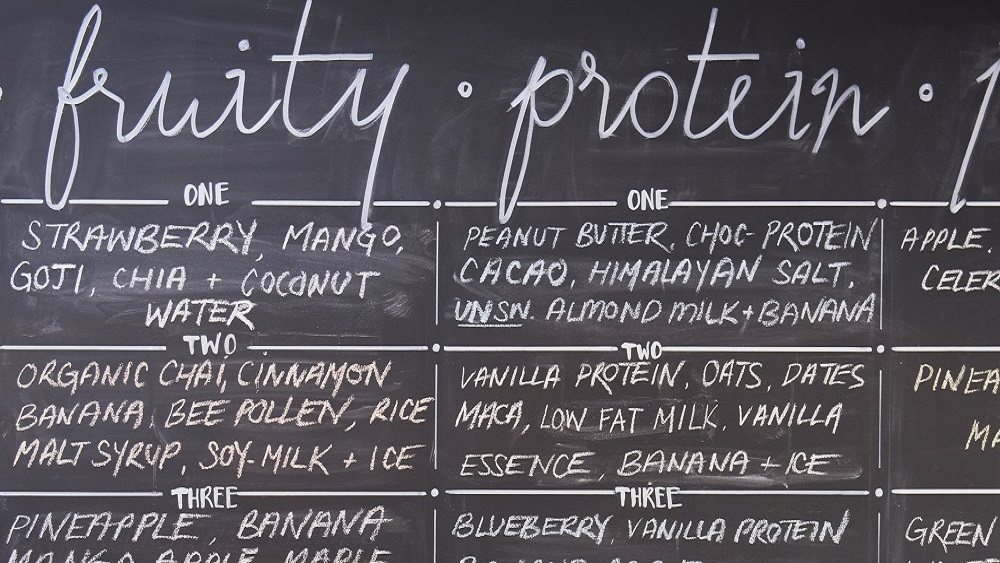 fruity · protein ·
ONE
STRAWBERRY, MANGO,
GOJI, CHIA + COCONUT
WATER
TWO
ORGANIC CHAI, CINNAMON
BANANA, BEE POLLEN, RICE
MALT SYRUP, SOY MILK + ICE
THREE
PINEAPPLE, BANANA
MANGO APPLE MAPLE
ONE
PEANUT BUTTER, CHOC PROTEIN
CACAO, HIMALAYAN SALT,
UNSN. ALMOND MILK + BANANA
TWO
VANILLA PROTEIN, OATS, DATES
MACA, LOW FAT MILK, VANILLA
ESSENCE, BANANA + ICE
THREE
BLUEBERRY, VANILLA PROTEIN
APPLE,
CELER
PINEA
MA
GREEN